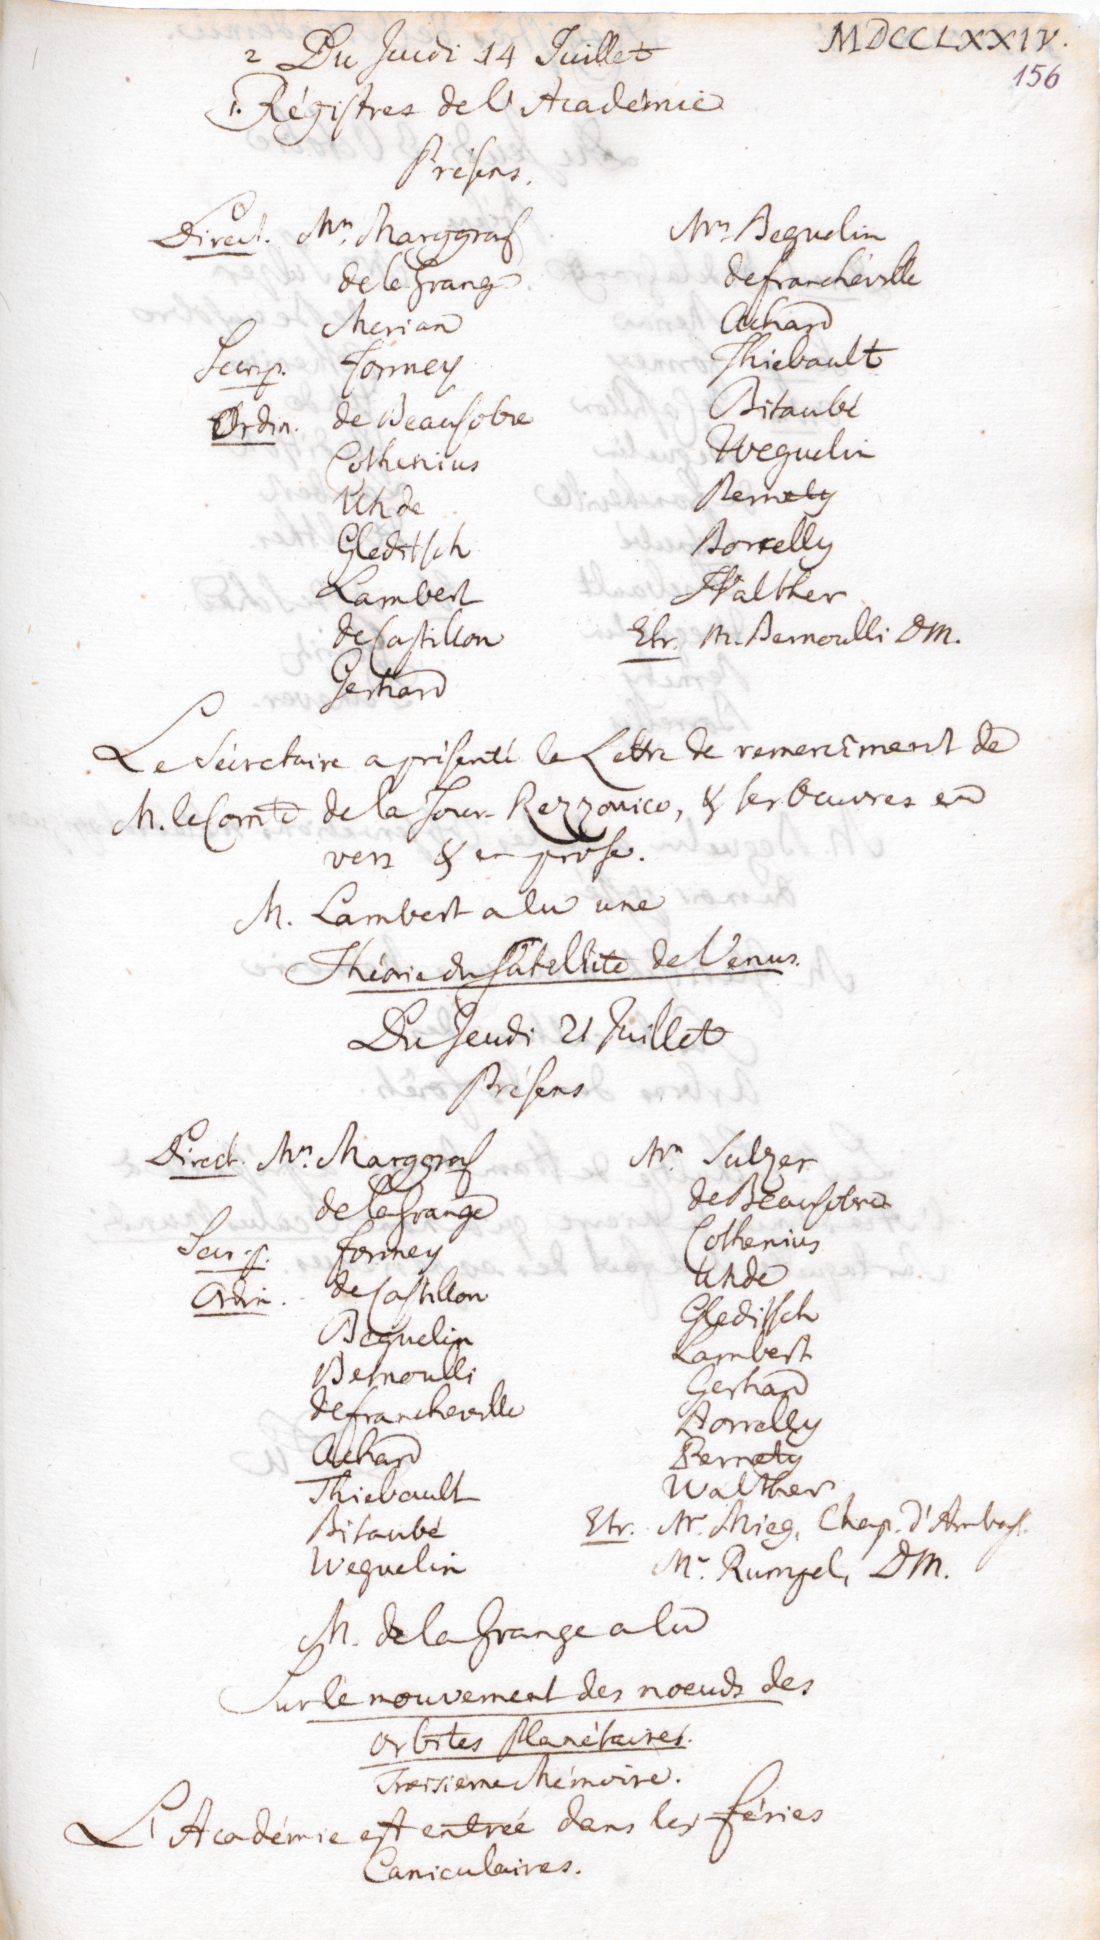 MDCCLXXIV.
156
2 Du Jeudi 14 Juillet
1. Régistres de l'Académie
Présens.
Direct. Mrs. Marggraf
de la Grange
Merian
Secr. p. Formey
Ordin. de Beausobre
Cothenius
Uhde
Gleditsch
Lambert
de Castillon
Gerhard
Mrs. Beguelin
de Francheville
Achard
Thiebault
Bitaubé
Weguelin
Pernety
Borrelly
Walther
Etr. M. Bernoulli DM.
Le Sécrétaire a présenté la Lettre de remerciment de
M. le Comte de la Tour-Rezzonico, & ses Oeuvres en
vers & en prose.
M. Lambert a lu une
Théorie du Satellite de Venus.
Du Jeudi 21 Juillet
Présens
Direct. Mrs. Marggraf
de la Grange
Secr. p. Formey
Ordin. de Castillon
Beguelin
Bernoulli
de Francheville
Achard
Thiebault
Bitaubé
Weguelin
Mrs. Sulzer
de Beausobre
Cothenius
Uhde
Gleditsch
Lambert
Gerhard
Borrelly
Pernety
Walther
Etr. Mr. Mieg, Chap. d'Ambass.
Mr. Rumpel, DM.
M. de la Grange a lu
Sur le mouvement des noeuds des
orbites Planétaires.
Troisieme Mémoire.
L'Académie est entrée dans les féries
Caniculaires.